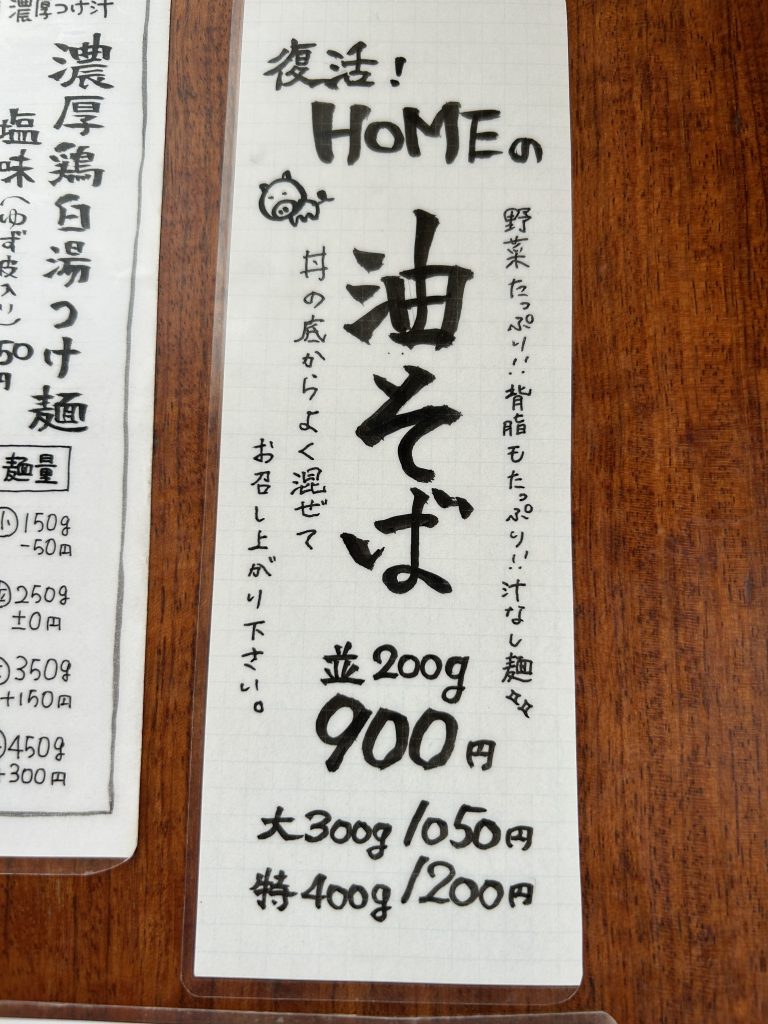 復活!
HOMEの
油そば
野菜たっぷり!!背脂もたっぷり!!汁なし麺
丼の底からよく混ぜて
お召し上がり下さい。
並200g
900円
大300g 1050円
特400g 1200円
濃厚つけ汁
濃厚鶏白湯つけ麺
塩味(ゆず皮入り)
50円
麺量
小 150g
-50円
250g
±0円
350g
+150円
450g
+300円